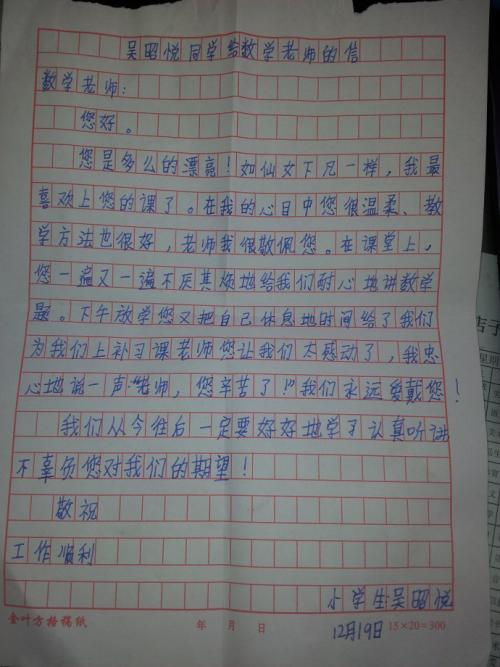 吴昭悦同学给数学老师的信
数学老师：
您好。
您是多么的漂亮！如仙女下凡一样，我最
喜欢上您的课了。在我的心目中您很温柔、教
学方法也很好，老师我很敬佩您。在课堂上，
您一遍又一遍不厌其烦地给我们耐心地讲数学
题。下午放学您又把自己休息地时间给了我们
为我们上补习课老师您让我们太感动了，我忠
心地说一声“老师，您辛苦了！”我们永远爱戴您！
我们从今往后一定要好好地学习认真听讲
不辜负您对我们的期望！
敬祝
工作顺利
小学生吴昭悦
金叶方格稿纸 年 月 日 12月19日 15×20=300